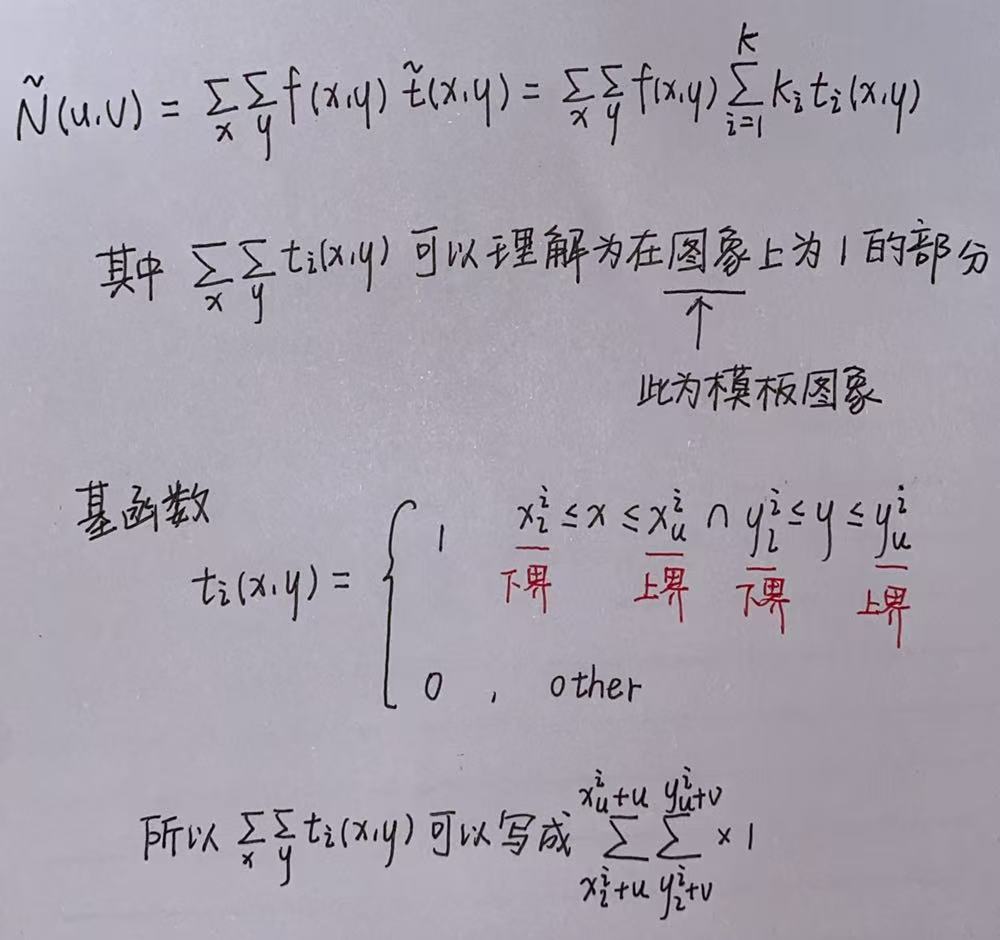 Ñ(u,v) = ∑_x ∑_y f(x,y) t̃(x,y) = ∑_x ∑_y f(x,y) ∑_{i=1}^{K} k_i t_i(x,y)
其中 ∑_x ∑_y t_i(x,y) 可以理解为在图象上为1的部分
↑
此为模板图象
基函数
t_i(x,y) = { 1 x_l^i ≤ x ≤ x_u^i ∩ y_l^i ≤ y ≤ y_u^i
下界 上界 下界 上界
0 , other
所以 ∑_x ∑_y t_i(x,y) 可以写成 ∑_{x_l^i+u}^{x_u^i+u} ∑_{y_l^i+v}^{y_u^i+v} × 1